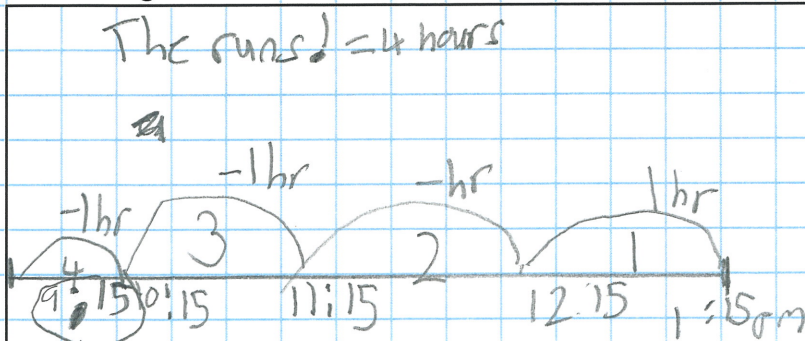 The runs! = 4 hours
-1hr -1hr -hr 1hr
4 3 2 1
9:15 10:15 11:15 12:15 1:15pm